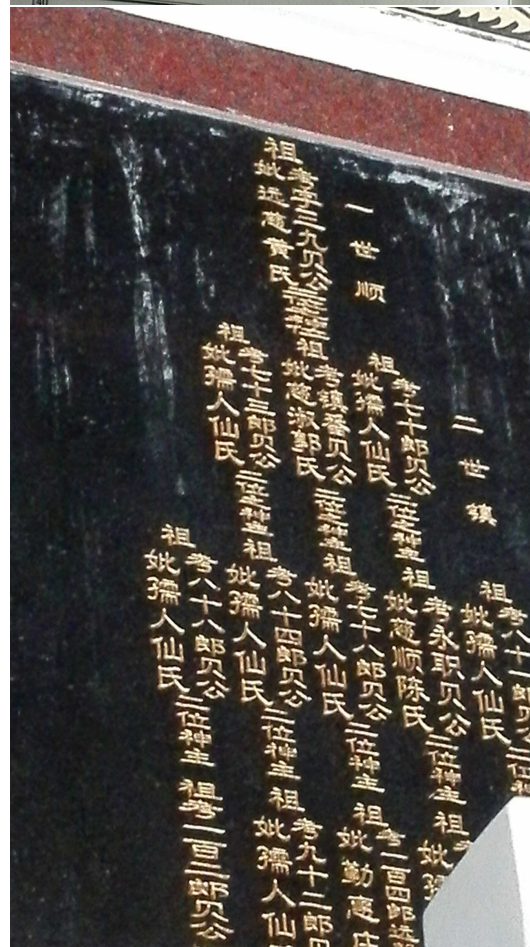 一世顺
祖
考字三九贝公
妣远慈黄氏
二位神主
二世镇
祖
考七十郎贝公
妣孺人仙氏
二位神主
祖
考镇蕃贝公
妣慈淑郭氏
二位神主
祖
考七十三郎贝公
妣孺人仙氏
二位神主
祖
考八十
妣孺人仙氏
二位
祖
考永职贝公
妣慈顺陈氏
二位神主
祖
考七十八郎贝公
妣孺人仙氏
二位神主
祖
考八十四郎贝公
妣孺人仙氏
二位神主
祖
考八十八郎贝公
妣孺人仙氏
二位神主
祖
考
妣
祖
考一百四郎远
妣勤惠庄
祖
考九十二郎
妣孺人仙
祖考一百二郎贝公